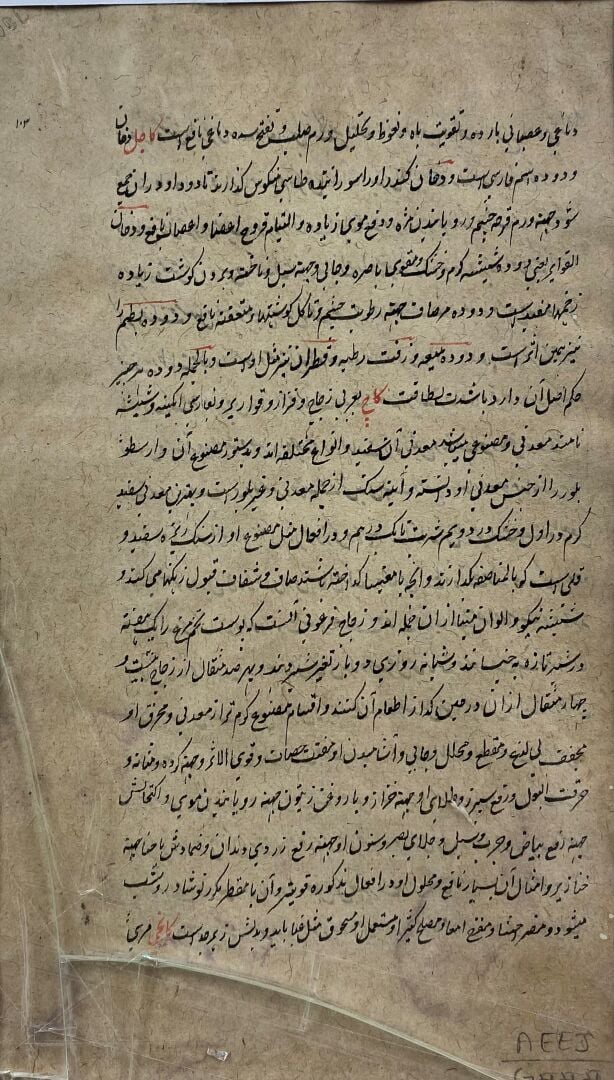 ۱۰۳
دماغی و عصبانی بارده و تقویت باه و نعوظ و تحلیل اورم صلب و تفتح سده دماغی نافع است کاجل دخان
و دوده اسم فارسی است و دخان کندر او را سورانیده طاسی منکوس گذارند تا دود او در آن جمع
شود جهة ورم قرحه چشم و رویانیدن مژه و رفع موی زیاده و التیام قروح اعضا و اعصاب نافع و دخان
القواریر یعنی دوده شیشه گرم و خشک و مقوی باصره و جالی و جهة سبل و ناخنه و بردن گوشت زیاده
زخمها مفید است و دوده مر صاف جهة رطوبت چشم و تاکل گوشتها و متعفنه نافع و دوده بطم را
نیز همین اثر است و دوده میعه و زفت رطبه و قطران نیز مثل اوست و بالجمله دوده هر چیز
حکم اصل آن دارد باشدت لطافت کاچ بعربی زجاج و قزاز و قواریر و بفارسی آبگینه و شیشه
نامند معدنی و مصنوعی میباشد معدنی آن سفید و انواع مختلفه اند و بدستور مصنوع آن و ارسطو
بلور را از جنس معدنی او دانسته و آمینه سنگ از جمله معدنی و غیر بلور است و بهترین معدنی سفید
گرم در اول و خشک در دویم شربت تا یک درهم و در افعال مثل مصنوع او از سنگ ریزه سفید و
قلی است که بالمناصفه بگدازند و آنچه با مغنیسا گداخته باشند صاف و شفاف قبول رنگها می کنند و
شیشه نیکو و الوان مینا از آن جمله اند و زجاج فرعونی آنست که پوست تخم مرغ را یک هفته
در شیر تازه بخیسانند و شبانه روزی دو بار تغیر شیر دهند و بهر صد مثقال از زجاج مثبت و
چهار مثقال از آن در حین گداز اطعام آن کنند و اقسام مصنوع گرم تر از معدنی و محرق او
مجفف بی لذع و مقطع و محلل و جالی و آشامیدن او مفتت حصات و قوی الاثر و جهة گرده و مثانه و
حرقت البول و رفع سپرز و طلای او جهة خزاز و با روغن زیتون جهة رویانیدن موی و اکتحالش
جهة رفع بیاض و جرب و سبل و جلای بصر و سنون او جهة رفع زردی دندان و ضمادش با حنا جهة
خنازیر و امثال آن بسیار نافع و محلول او در افعال مذکوره قویتر و آن با مقطر مکرر نوشادر و شب
میشود و مضر احشا و مقرح امعا و مصلح کثیرا و مستعمل او مسحوق مثل غبا باید و بدلش زبرجد است کاجی مری
AEEJ